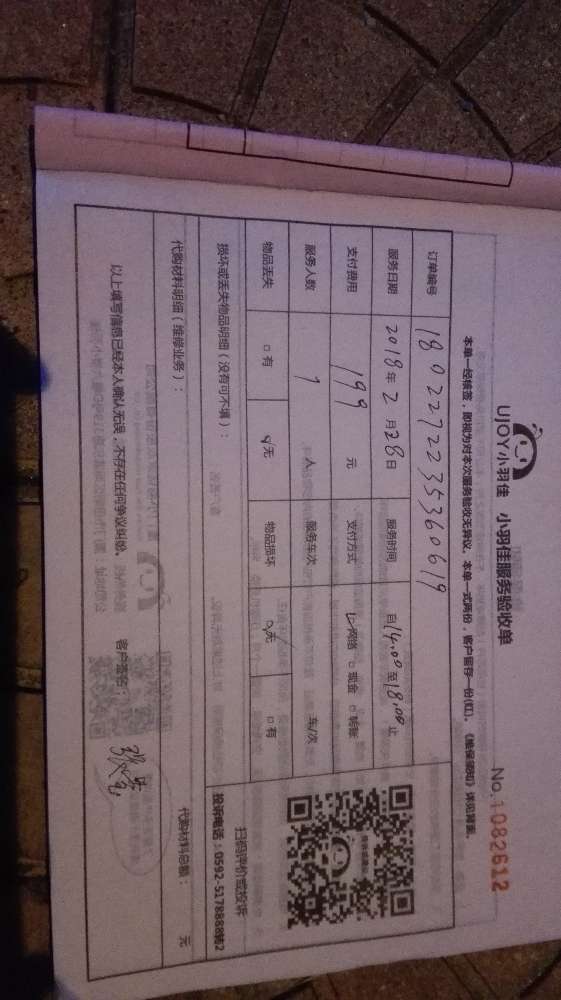 UJOY小羽佳 小羽佳服务验收单
No.1082612
本单一经核签，即视为对本次服务验收无异议。本单一式两份，客户留存一份(红)。《维保须知》详见背面。
订单编号 1802272235360619
服务日期 2018年2月28日 服务时间 自14:00至18:00止
支付费用 199 元 支付方式 网络 现金 转账
服务人数 1 人 服务车次 车/次
物品丢失 有 无 物品损坏 无 有
损坏或丢失物品明细（没有可不填）：
扫码评价或投诉
投诉电话：0592-5178888转2
代购材料明细（维修业务）：
代购材料总额： 元
以上填写信息已经本人确认无误，不存在任何争议纠纷。 客户签名：